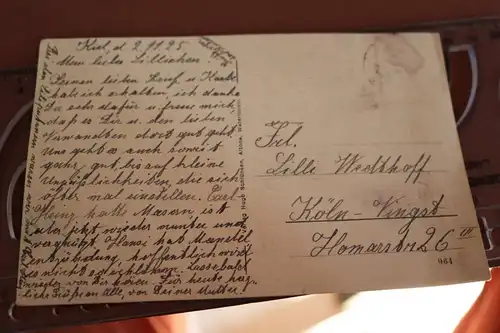 Kiel, d. 2.11.25
Mein liebes Lillichen!
Deinen lieben Brief u Karte
habe ich erhalten, ich danke
Da sehr dafür u freue mich
daß es Dir u den lieben
Verwandten dort gut geht.
Uns geht es auch soweit
ganz gut bis auf kleine
Unpäßlichkeiten, die sich
öfter mal einstellen. Carl-
Heinz hatte Masern, ist
aber jetzt wieder munter und
vergnügt. Hansi hat Mandel
entzündung, hoffentlich wird
es nicht schlimm.
von Dir hören. Für heute herz-
liche Grüße an Alle, von Deiner Mutter!
Frl.
Lilli Westhoff
Köln-Vingst
Homarstr 26 III
964